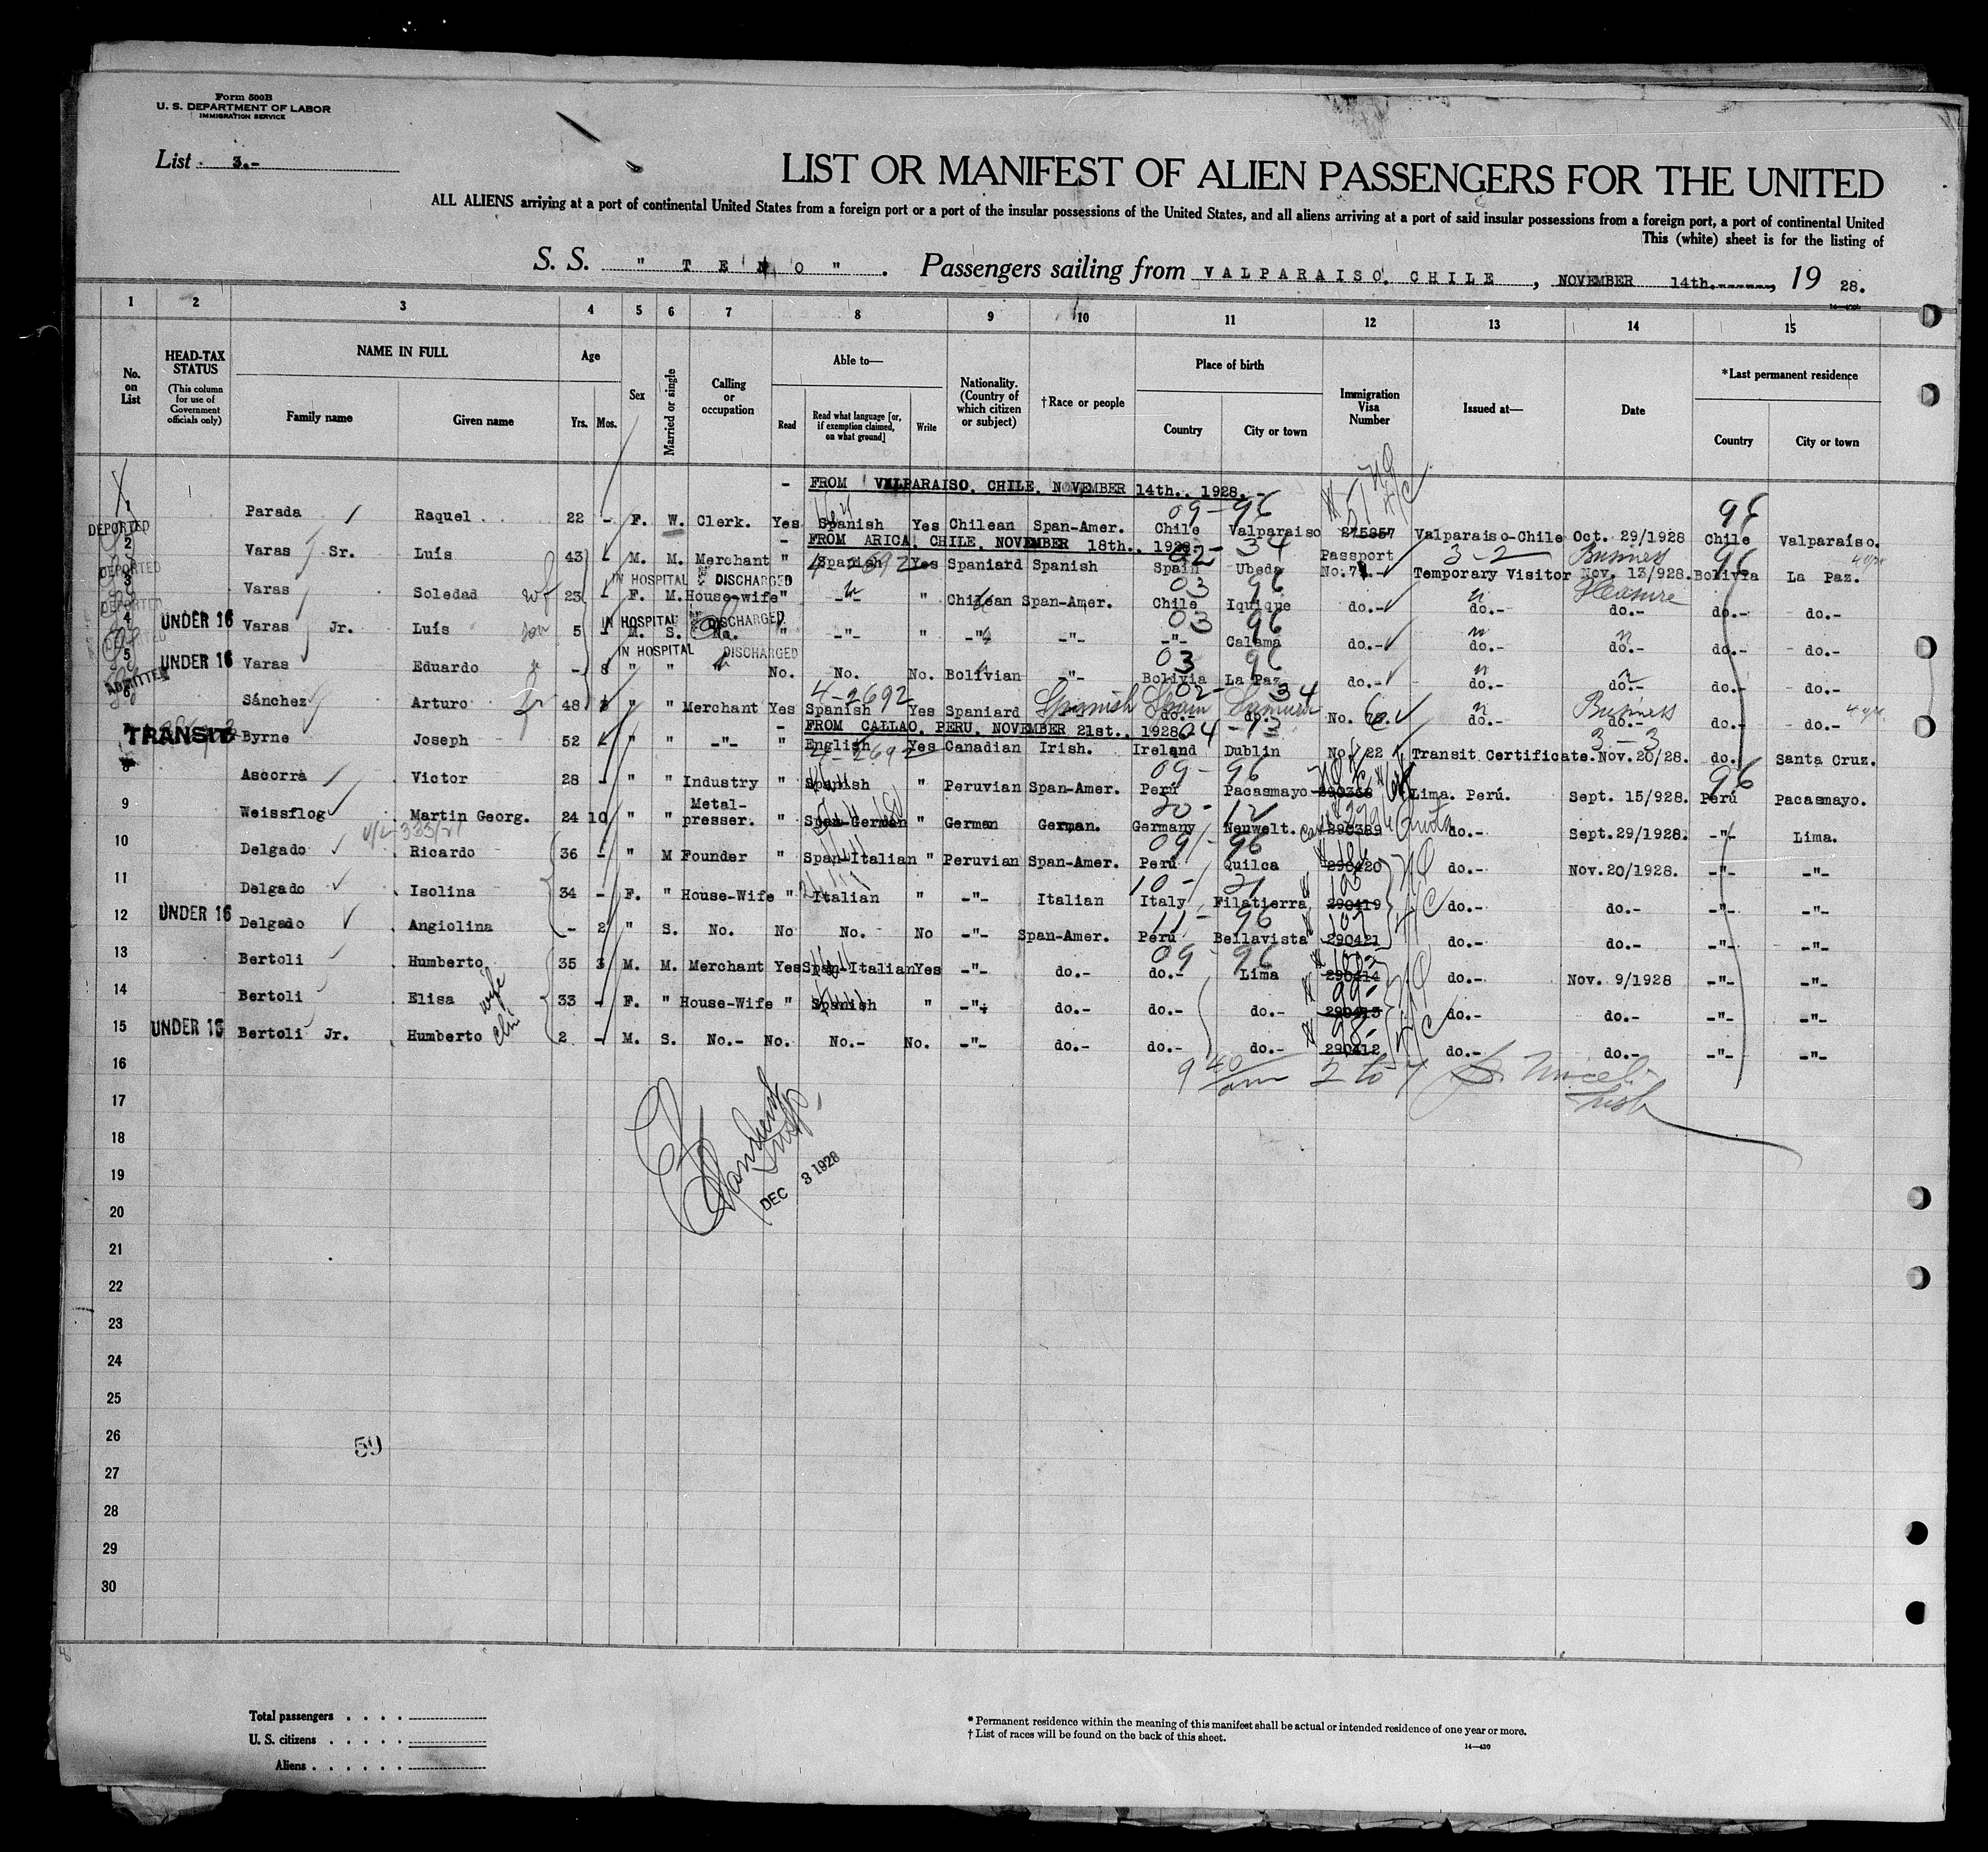 Form 500B
U. S. DEPARTMENT OF LABOR
IMMIGRATION SERVICE
List 3.-
LIST OR MANIFEST OF ALIEN PASSENGERS FOR THE UNITED
ALL ALIENS arriving at a port of continental United States from a foreign port or a port of the insular possessions of the United States, and all aliens arriving at a port of said insular possessions from a foreign port, a port of continental United
This (white) sheet is for the listing of
S. S. " T E N O " . Passengers sailing from VALPARAISO, CHILE , NOVEMBER 14th. , 19 28.
1 2 3 4 5 6 7 8 9 10 11 12 13 14 15
No. on List
HEAD-TAX STATUS
(This column for use of Government officials only)
NAME IN FULL
Family name Given name
Age
Yrs. Mos.
Sex
Married or single
Calling or occupation
Able to—
Read Read what language [or, if exemption claimed, on what ground] Write
Nationality. (Country of which citizen or subject)
†Race or people
Place of birth
Country City or town
Immigration Visa Number
Issued at—
Date
*Last permanent residence
Country City or town
- FROM VALPARAISO, CHILE, NOVEMBER 14th., 1928. -
09-96 96
Parada Raquel 22 - F. W. Clerk. Yes Spanish Yes Chilean Span-Amer. Chile Valparaiso 275857 Valparaiso-Chile Oct. 29/1928 Chile Valparaiso.
DEPORTED
- FROM ARICA, CHILE, NOVEMBER 18th., 1928. -
2 Varas Sr. Luís 43 - M. M. Merchant " Spanish Yes Spaniard Spanish Spain Ubeda Passport No. Temporary Visitor Nov. 13/928. Bolivia La Paz.
3-2 Business
DEPORTED
IN HOSPITAL DISCHARGED
3 Varas Soledad wf 23 - F. M. House-wife " -"- " Chilean Span-Amer. Chile Iquique do.- do.- do.- do.- do.-
03 96 Pleasure
DEPORTED
IN HOSPITAL DISCHARGED
4 UNDER 16 Varas Jr. Luís son 5 - M. S. No. " -"- " -"- -"- -"- Calama do.- do.- do.- do.- do.-
03 96
DEPORTED
IN HOSPITAL DISCHARGED
5 UNDER 16 Varas Eduardo - 8 " " No. No. No. Bolivian -"- Bolivia La Paz do.- do.- do.- do.- do.-
03 96
ADMITTED
4-2692 02- 34
6 Sánchez Arturo 48 " " Merchant Yes Spanish Yes Spaniard Spanish Spain do.- do.- No. do.- do.- do.- do.-
Business
- FROM CALLAO, PERU, NOVEMBER 21st., 1928. -
TRANSIT Byrne Joseph 52 " " -"- " English Yes Canadian Irish. Ireland Dublin No. 22 Transit Certificate. Nov.20/28. do. Santa Cruz.
3-3
4-2692
09-96 96
8 Ascorra Victor 28 - " " Industry " Spanish " Peruvian Span-Amer. Perú Pacasmayo 290368 Lima. Perú. Sept. 15/928. Perú Pacasmayo.
9 Weissflog Martin Georg. 24 10 " " Metal-presser. " Span-German " German German. Germany Neuwelt. 290389 Quota do.- Sept.29/1928. -"- Lima.
09-96
10 Delgado Ricardo 36 - " M Founder " Span-Italian " Peruvian Span-Amer. Perú Quilca 290420 do.- Nov.20/1928. -"- -"-
10-21
11 Delgado Isolina 34 - F. " House-Wife " Italian " -"- Italian Italy Filatierra 290419 do.- do.- -"- -"-
11-96
12 UNDER 16 Delgado Angiolina - 2 " S. No. No No. No -"- Span-Amer. Perú Bellavista 290421 do.- do.- -"- -"-
09-96
13 Bertoli Humberto 35 3 M. M. Merchant Yes Span-Italian Yes -"- do.- do.- Lima 290414 do.- Nov. 9/1928 -"- -"-
14 Bertoli Elisa wife 33 - F. " House-Wife " Spanish " -"- do.- do.- do.- 290413 do.- do.- -"- -"-
15 UNDER 16 Bertoli Jr. Humberto 2 - M. S. No.- No. No.- No. -"- do.- do.- do.- 290412 do.- do.- -"- -"-
16 9 40 am 2 to 7
17
18
19
DEC 3 1928
20
21
22
23
24
25
26
59
27
28
29
30
Total passengers
U. S. citizens
Aliens
* Permanent residence within the meaning of this manifest shall be actual or intended residence of one year or more.
† List of races will be found on the back of this sheet.
14—430